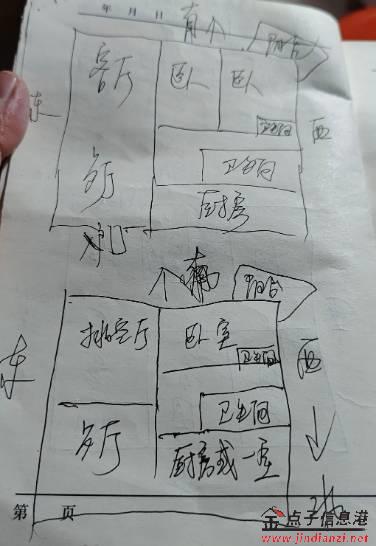 年 月 日
南个
阳台
客厅 卧 卧
东 西
卫生间
卫生间
厨房
北
个南
阳台
卧室
东 西
卫生间
卫生间
厨房或一室
北
第 页
金点子信息港
www.jindianzi.net